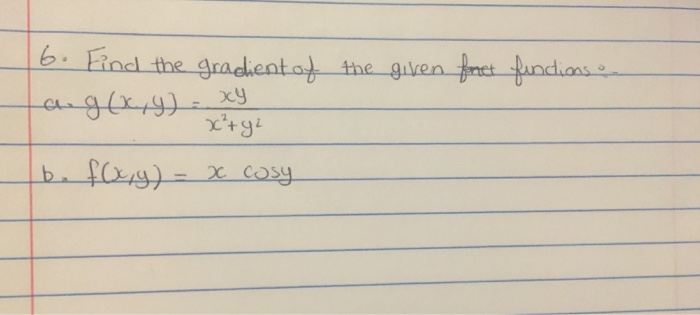 6. Find the gradient of the given functions:-
a. g(x,y) = xy / x²+y²
b. f(x,y) = x cosy